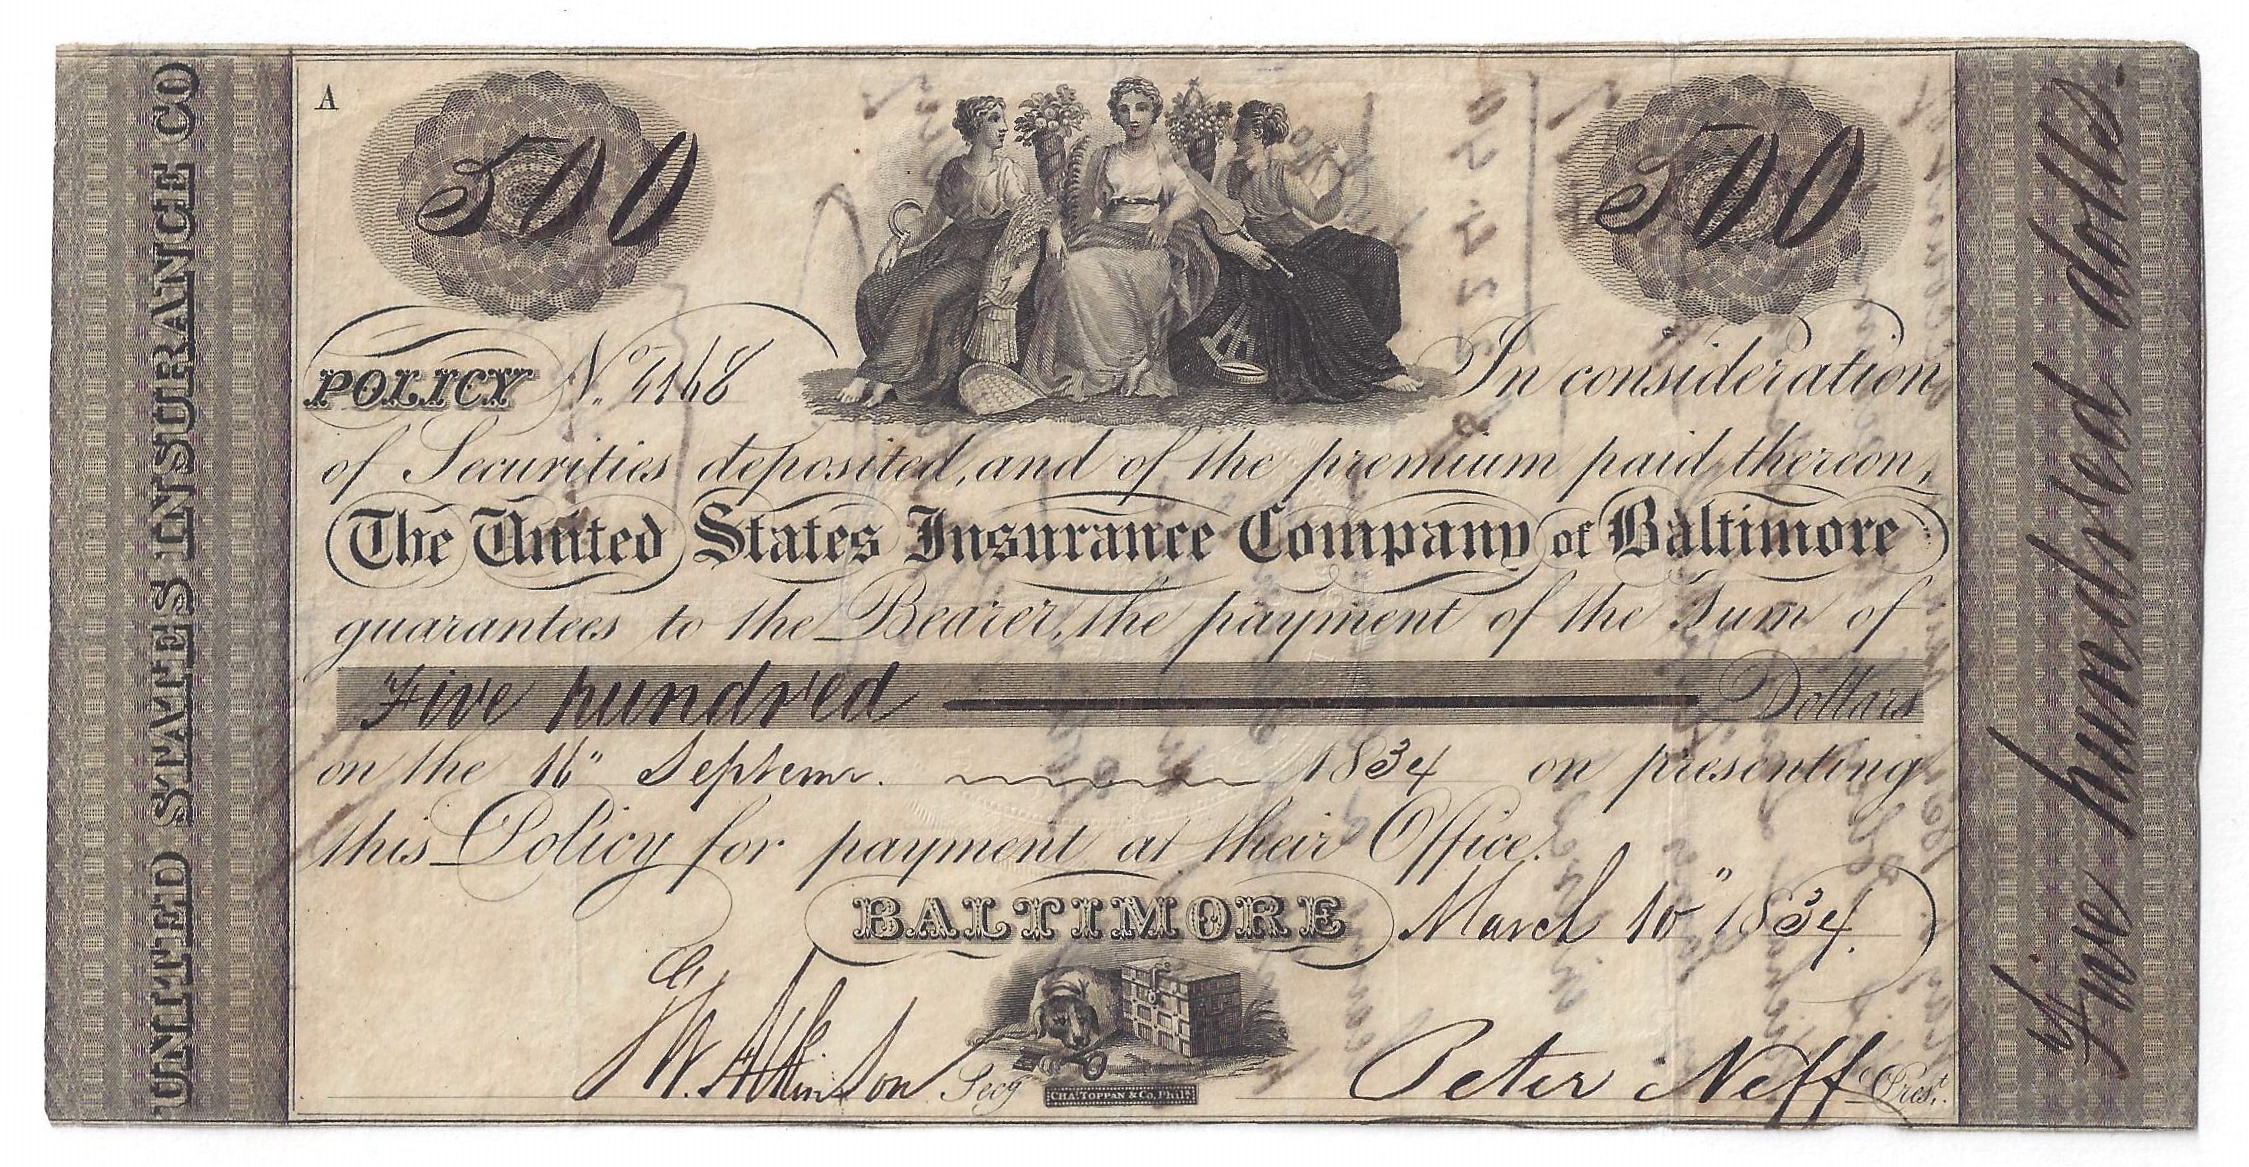 A
500
500
POLICY No. 4168
In consideration
of Securities deposited, and of the premium paid thereon,
The United States Insurance Company of Baltimore
guarantees to the Bearer, the payment of the Sum of
Five hundred Dollars
on the 16" Septemr. 1834 on presenting
this Policy for payment at their Office.
BALTIMORE March 10" 1834.
W. Atkinson Secy
Peter Neff Prest.
CHAS TOPPAN & Co. PHILA
UNITED STATES INSURANCE CO
Five hundred dolls.